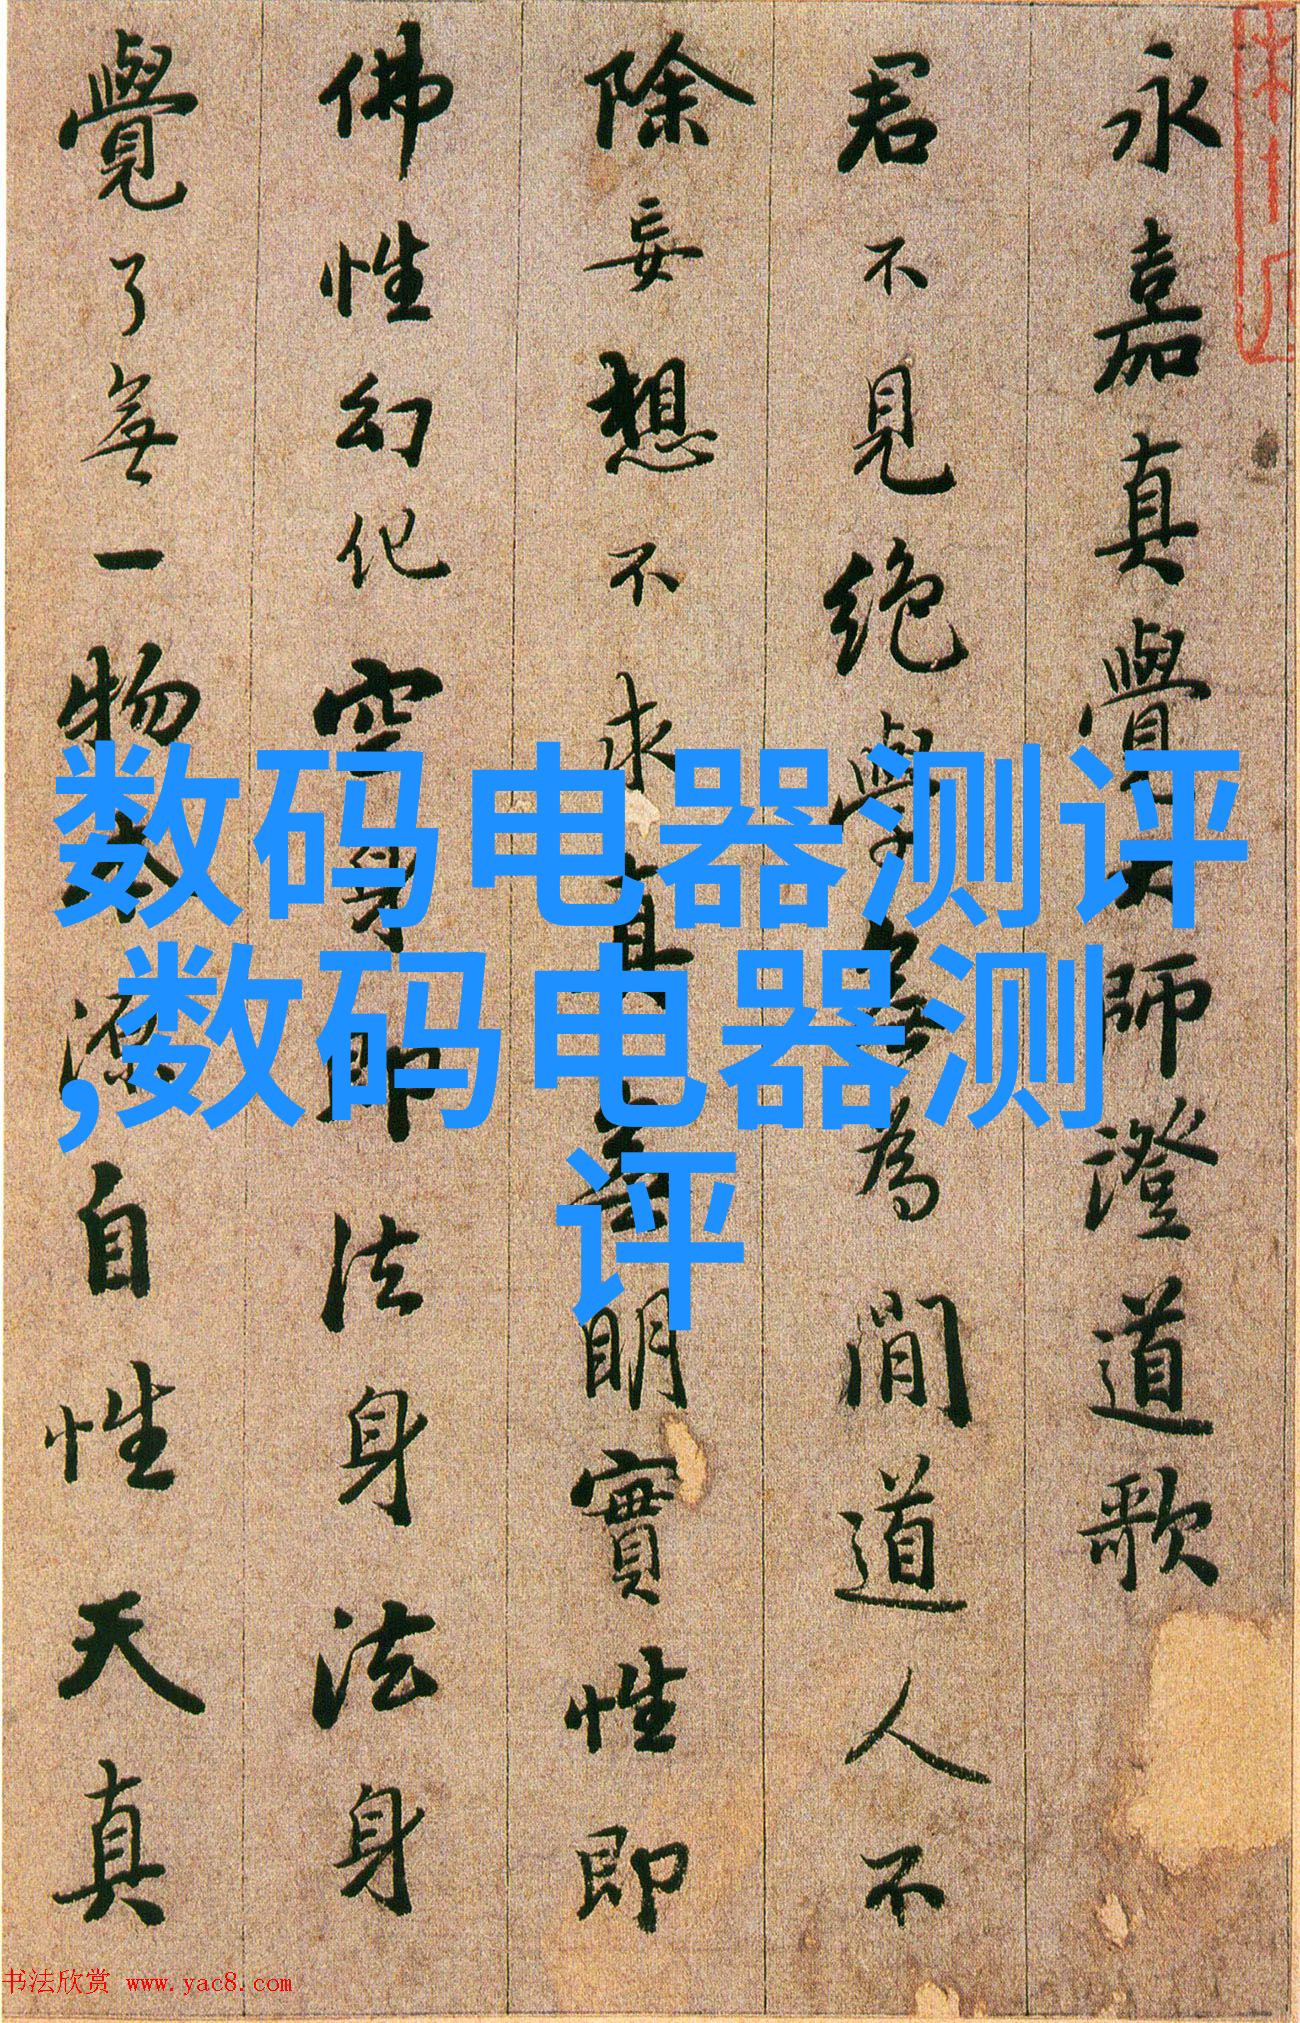 永嘉真覺大師澄道歌
君不見絶學無為閒道人不
除妄想不求真無明實性即
佛性幻化空身即法身法身
覺了無一物本源自性天真
数码电器测评
,数码电器测
评
书法欣赏 www.yac8.com